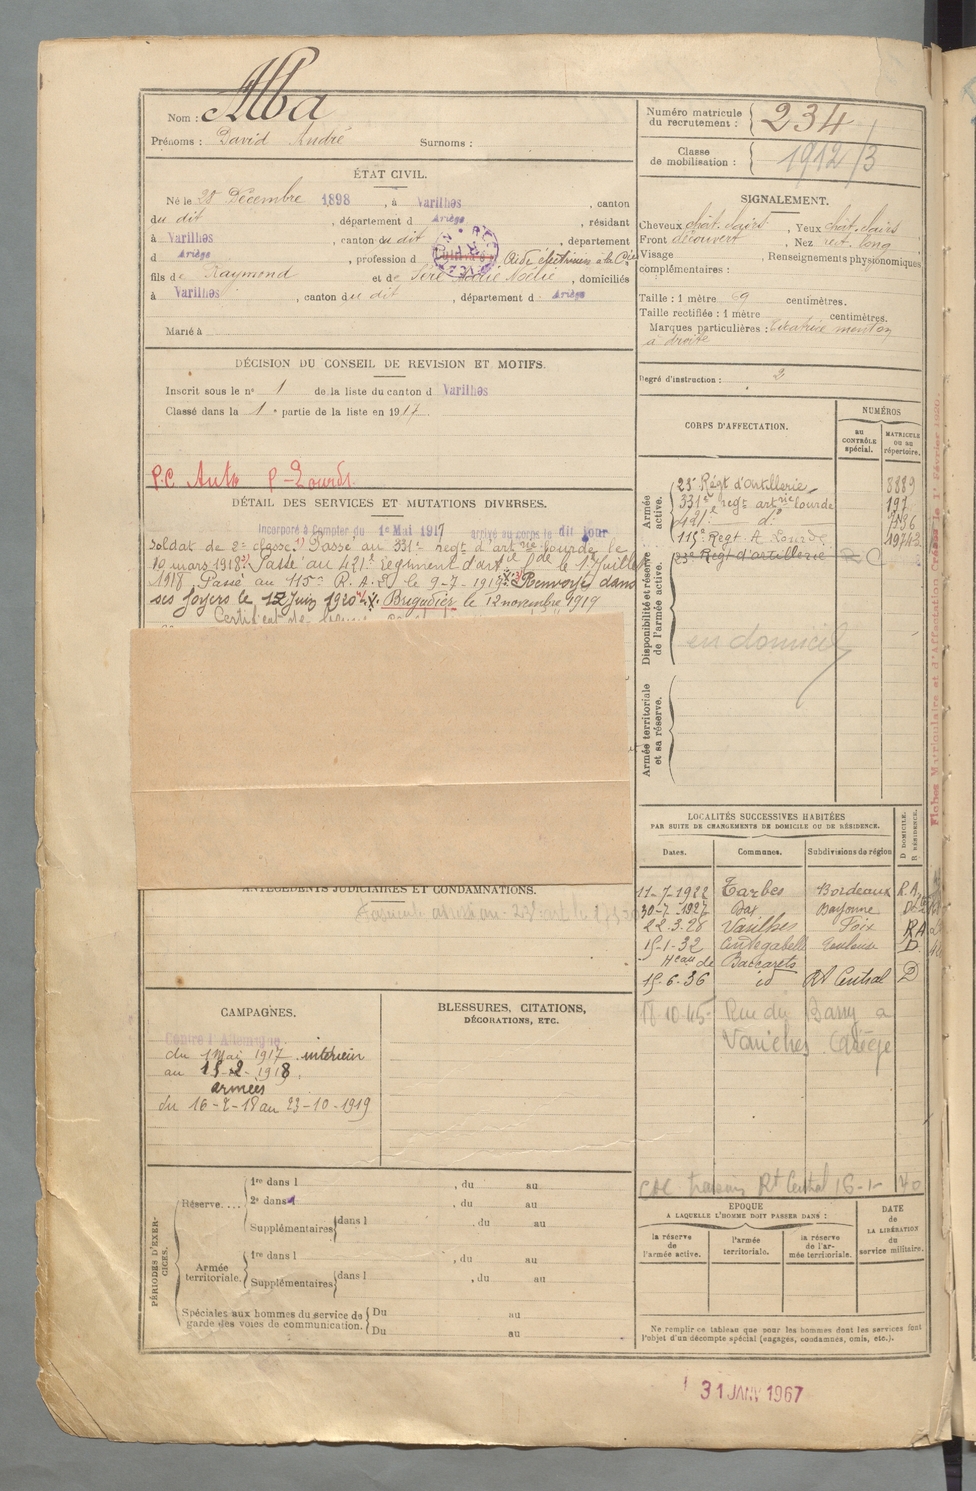 Nom : Alba
Prénoms : David André Surnoms :
ÉTAT CIVIL.
Né le 28 Décembre 1898, à Varilhes, canton
du dit, département d Ariège, résidant
à Varilhes, canton du dit, département
d Ariège, profession d Aide électricien à la Cie
fils de Raymond et de Séré Marie Noélie, domiciliés
à Varilhes, canton du dit, département d Ariège
Marié à
DÉCISION DU CONSEIL DE REVISION ET MOTIFS.
Inscrit sous le n° 1 de la liste du canton d Varilhes
Classé dans la 1e partie de la liste en 1917.
P.C Auto P-Lourds.
DÉTAIL DES SERVICES ET MUTATIONS DIVERSES.
Incorporé à Compter du 1er Mai 1917 arrivé au corps le dit jour
Soldat de 2e classe. 1) Passé au 331e regt d'artrie lourde le
19 mars 1918 2) Passé au 421e régiment d'artie lde le 1er Juillet
1918. Passé au 115e R.A.L le 9-7-1919. Renvoyé dans
ses foyers le 12 Juin 1920. Brigadier le 12 novembre 1919
Certificat de bonne
ANTÉCÉDENTS JUDICIAIRES ET CONDAMNATIONS.
CAMPAGNES.
Contre l'Allemagne.
du 1 Mai 1917 intérieur
au 15-2-1918.
armées
du 16-2-18 au 23-10-1919
BLESSURES, CITATIONS,
DÉCORATIONS, ETC.
PÉRIODES D'EXERCICES.
Réserve....
1re dans l , du au
2e dans l , du au
Supplémentaires dans l , du au
Armée territoriale.
1re dans l , du au
Supplémentaires dans l , du au
Spéciales aux hommes du service de
garde des voies de communication.
Du au
Du au
Numéro matricule
du recrutement : 234
Classe
de mobilisation : 1912/3
SIGNALEMENT.
Cheveux chat. clairs, Yeux chat. clairs
Front découvert, Nez rect. long
Visage , Renseignements physionomiques
complémentaires :
Taille : 1 mètre 69 centimètres.
Taille rectifiée : 1 mètre centimètres.
Marques particulières : Cicatrice menton
à droite
Degré d'instruction : 2
CORPS D'AFFECTATION.
NUMÉROS
AU CONTRÔLE spécial.
MATRICULE OU AU répertoire.
Armée active.
23e Régt d'Artillerie 8889
331e regt artrie lourde 197
421e do 7536
115e Regt A Lourde 19742
Disponibilité et réserve de l'armée active.
23e Régt d'artillerie
en domicile
Armée territoriale et sa réserve.
LOCALITÉS SUCCESSIVES HABITÉES
PAR SUITE DE CHANGEMENTS DE DOMICILE OU DE RÉSIDENCE.
Dates. Communes. Subdivisions de région D DOMICILE. R RÉSIDENCE.
11-7-1922 Tarbes Bordeaux R.A
30-7-1927 Dax Bayonne
22.3.28 Varilhes Foix RA
15-1-32 Cintegabelle Toulouse D.
Heau de Baccarets
15.6.36 id Rt Central D
18-10-45 Rue du Barry à
Varilhes Ariège
Rt Central 16-1-40
EPOQUE
A LAQUELLE L'HOMME DOIT PASSER DANS :
la réserve de l'armée active.
l'armée territoriale.
la réserve de l'armée territoriale.
DATE de LA LIBÉRATION du service militaire.
Ne remplir ce tableau que pour les hommes dont les services font
l'objet d'un décompte spécial (engagés, condamnés, omis, etc.).
31 JANV 1967
Fiches Matriculaire et d'Affectation Créées le 1er Février 1920.